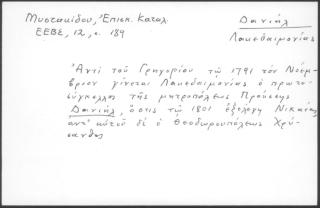 Μυστακίδου, Ἐπισκ. Καταλ.
ΕΕΒΣ, 12, σ. 189
Δανιήλ
Λακεδαιμονίας
Ἀντὶ τοῦ Γρηγορίου τῷ 1791 τὸν Νοέμ-
βριον γίνεται Λακεδαιμονίας ὁ πρωτο-
σύγκελλος τῆς μητροπόλεως Προύσης
Δανιήλ, ὅστις τῷ 1801 ἐξελέγη Νικαίας
ἀντ' αὐτοῦ δὲ ὁ Θεοδωρουπόλεως Χρύ-
σανθος